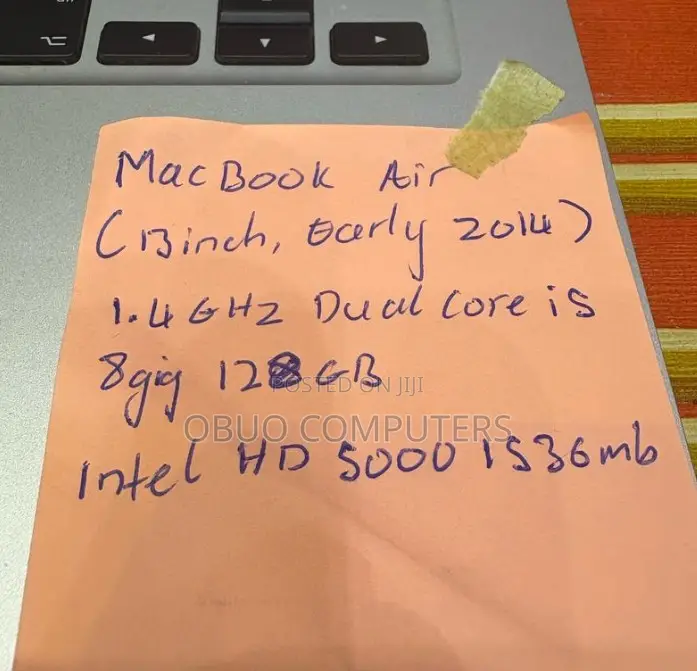 MacBook Air
(13inch, Early 2014)
1.4 GHz Dual core is
8gig 128 GB
POSTED ON JIJI
OBUO COMPUTERS
Intel HD 5000 1536mb